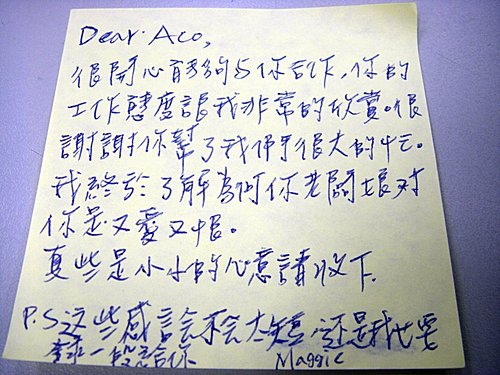 Dear Aco,
很開心能夠与你合作，你的
工作態度讓我非常的欣賞。很
謝謝你幫了我們很大的忙。
我終於了解為何你老闆娘对
你是又愛又恨。
這些是小小的心意請收下
P.S 这些感言会不会太短，还是我也要
錄一段給你
Maggie